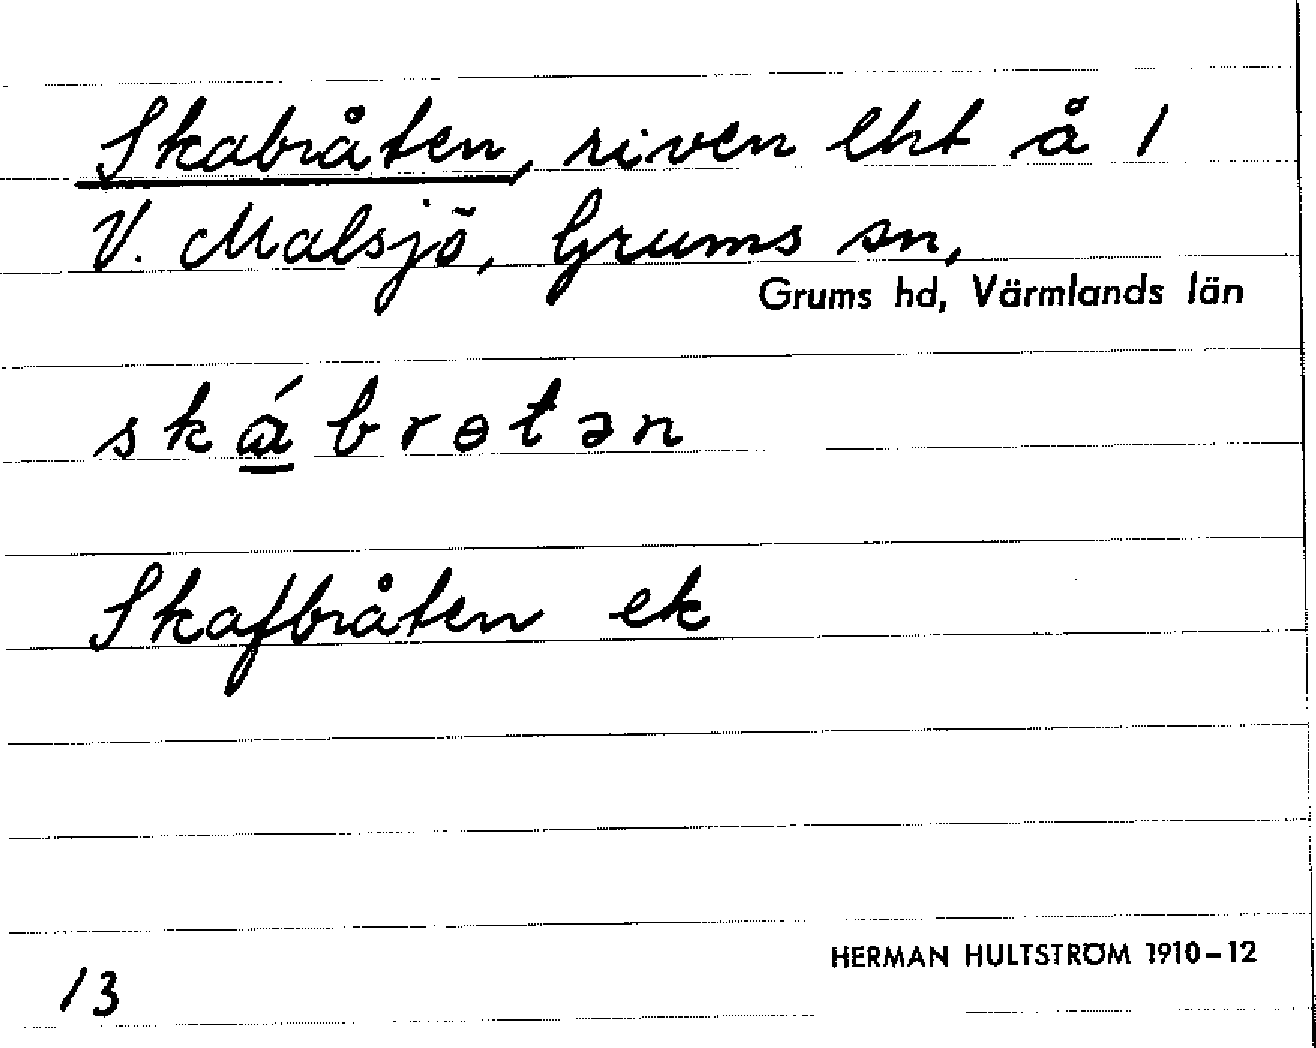 Skabråten, riven lht å 1
V. Malsjö, Grums sn,
Grums hd, Värmlands län
skɑ́brɵtən
Skafbråten ek
HERMAN HULTSTRÖM 1910–12
13